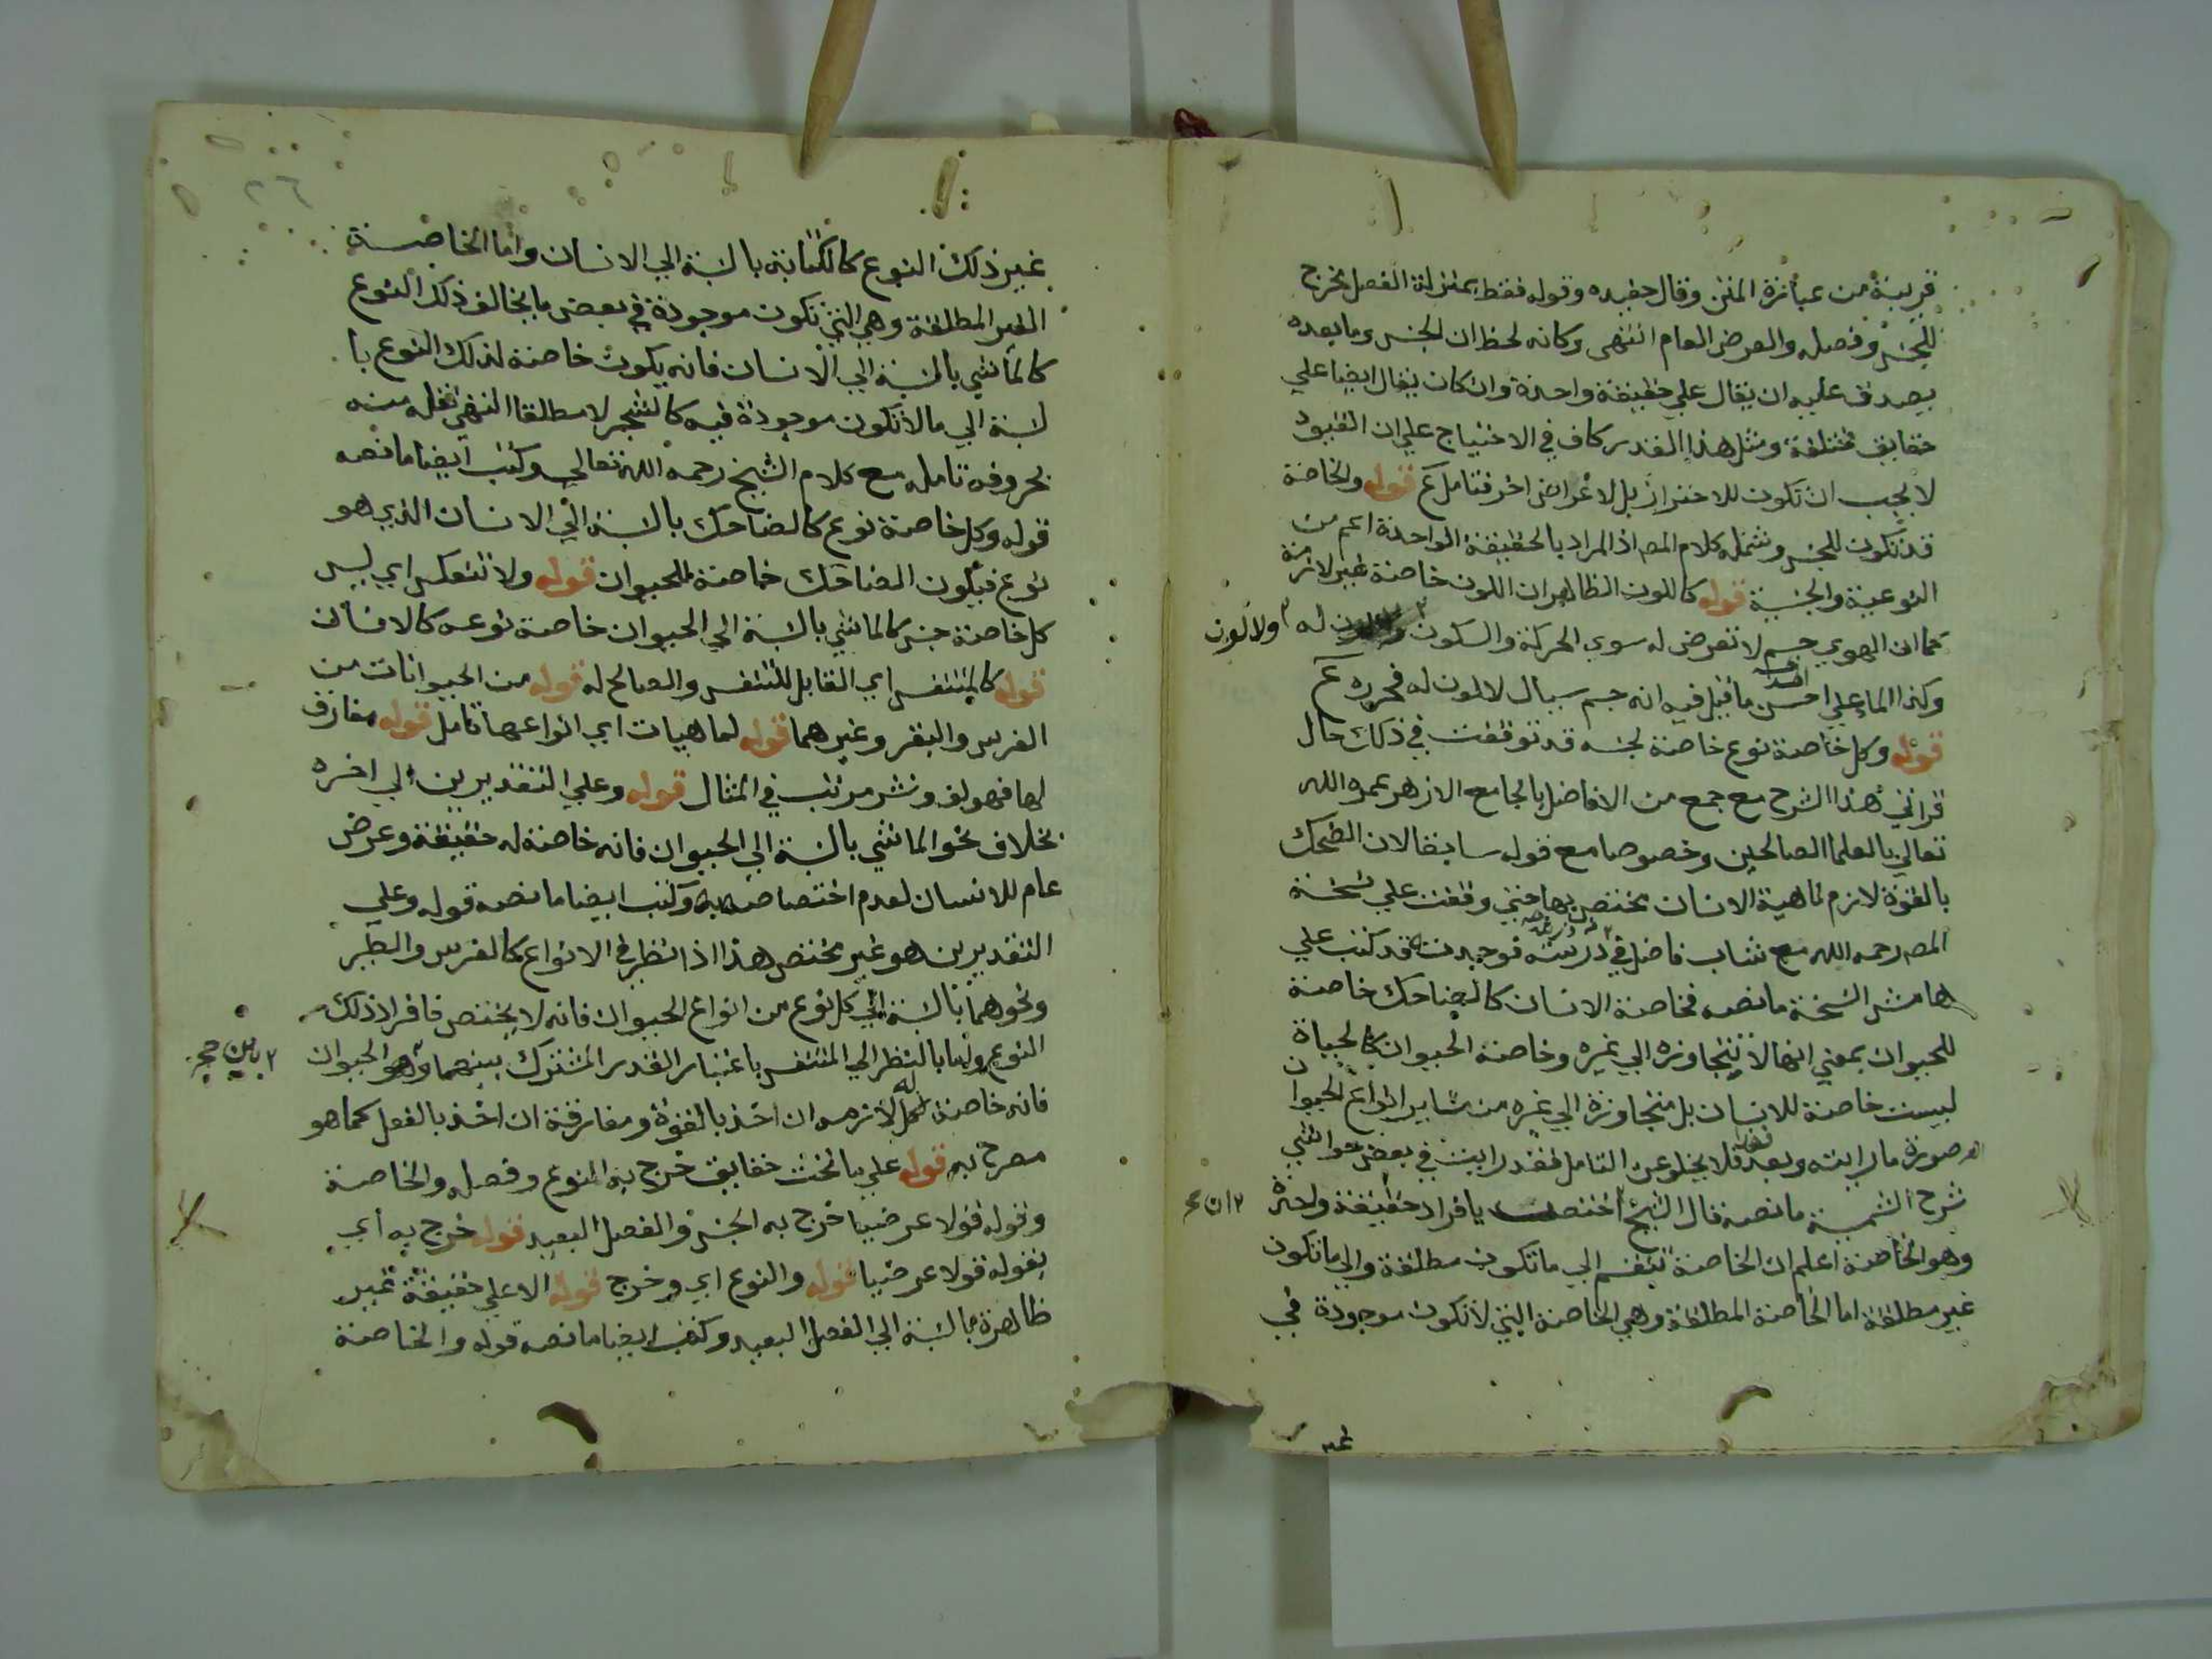 قرينة من عبارة المتن وقال حفيده وقوله فقط بمنزلة الفصل يخرج
للجنس وفصله والعرض العام انتهى وكانه لحظ ان الجنس وما بعده
يصدق عليه ان يقال علي حقيقة واحدة وان كان يقال ايضا علي
حقايق مختلفة ومثل هذا القدر كاف في الاحتياج علي ان القيود
لا يجب ان تكون للاحتراز بل لاغراض اخر فتامل قوله والخاصة
قد تكون للجنس وشمله كلام المص اذ المراد بالحقيقة الواحدة اعم من
النوعية والجنسية قوله كاللون الظاهر ان اللون خاصة غير لازمة
كما ان الهوي جسم لا تعرض له سوي الحركة والسكون له ولا لون
وكذا الماء علي احسن ما قيل فيه انه جسم سيال لا لون له فحرره
قوله وكل خاصة نوع خاصة لجنسه قد توقفت في ذلك حال
قراتي هذا الشرح مع جمع من الافاضل بالجامع الازهر عمره الله
تعالي بالعلما الصالحين وخصوصا مع قوله سابقا لان الضحك
بالقوة لازم لماهية الانسان مختص بها حتي وقفت علي نسخة
المص رحمه الله مع شاب فاضل في درسه فوجدت قد كتب علي
هامش النسخة ما نصه فخاصة الانسان كالضاحك خاصة
للحيوان بمعني انها لا تتجاوزه الي غيره وخاصة الحيوان كالحياة
ليست خاصة للانسان بل متجاوزة الي غيره من ساير انواع الحيوان
صورة ما رايته وبعد فلا يخلو عن التامل فقد رايت في بعض حواشي
شرح الشمسية ما نصه قال الشيخ اختصت بافراد حقيقة واحدة
وهو الخاصة اعلم ان الخاصة تنقسم الي ما تكون مطلقة والي ما تكون
غير مطلقة اما الخاصة المطلقة وهي الخاصة التي لا تكون موجودة في
غير
٢٦
غير ذلك النوع كالكتابة بالنسبة الي الانسان واما الخاصة
الغير المطلقة وهي التي تكون موجودة في بعض ما يخالف ذلك النوع
كالماشي بالنسبة الي الانسان فانه يكون خاصة لذلك النوع با
لنسبة الي ما لا تكون موجودة فيه كالشجر لا مطلقا انتهي نقله منه
بحروفه تامله مع كلام الشيخ رحمه الله تعالي وكتب ايضا ما نصه
قوله وكل خاصة نوع كالضاحك بالنسبة الي الانسان الذي هو
نوع فيكون الضاحك خاصة للحيوان قوله ولا تنعكس اي ليس
كل خاصة جنس كالماشي بالنسبة الي الحيوان خاصة نوعه كالانسان
قوله كالمتنفس اي القابل للتنفس والصالح له قوله من الحيوانات من
الفرس والبقر وغيرهما قوله لماهيات اي انواعها تامل قوله مفارق
لها فهو لف ونشر مرتب في المثال قوله وعلي التقديرين الي اخره
بخلاف نحو الماشي بالنسبة الي الحيوان فانه خاصة له حقيقة وعرض
عام للانسان لعدم اختصاصه به وكتب ايضا ما نصه قوله وعلي
التقديرين هو غير مختص هذا اذا نظر في الانواع كالفرس والطير
ونحوهما بالنسبة الي كل نوع من انواع الحيوان فانه لا يختص فافراد ذلك
النوع واما بالنظر الي المتنفس باعتبار القدر المشترك بينهما وهو الحيوان
فانه خاصة له لازمه ان اخذ بالقوة ومفارقة ان اخذ بالفعل كما هو
مصرح به قوله علي ما تحت حقايق خرج به النوع وفصله والخاصة
وقوله قولا عرضيا خرج به الجنس والفصل البعيد قوله خرج به اي
بقوله قولا عرضيا قوله والنوع اي وخرج قوله الا علي حقيقة غير
ظاهرة بالنسبة الي الفصل البعيد وكتب ايضا ما نصه قوله والخاصة